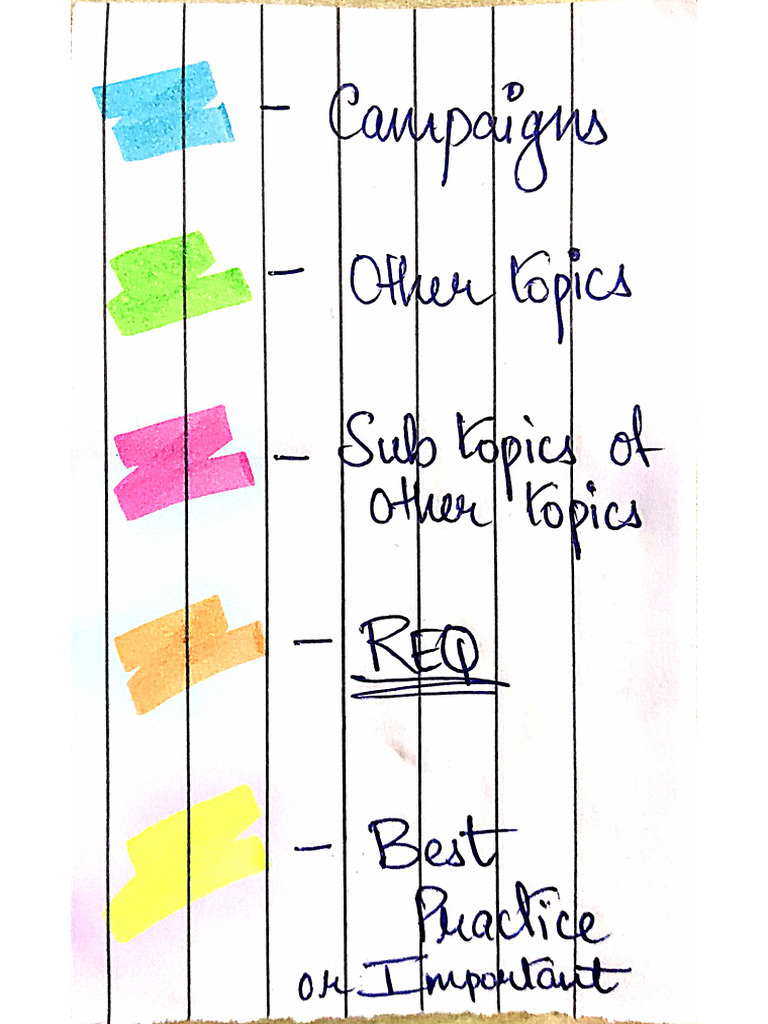 - Campaigns
- Other topics
- Sub topics of
other topics
- REQ
- Best
Practice
or Important